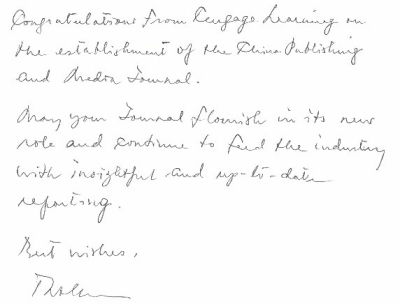 Congratulations from Cengage Learning on
the establishment of the China Publishing
and Media Journal.
May your Journal flourish in its new
role and continue to feed the industry
with insightful and up-to-date
reporting.
Best wishes,